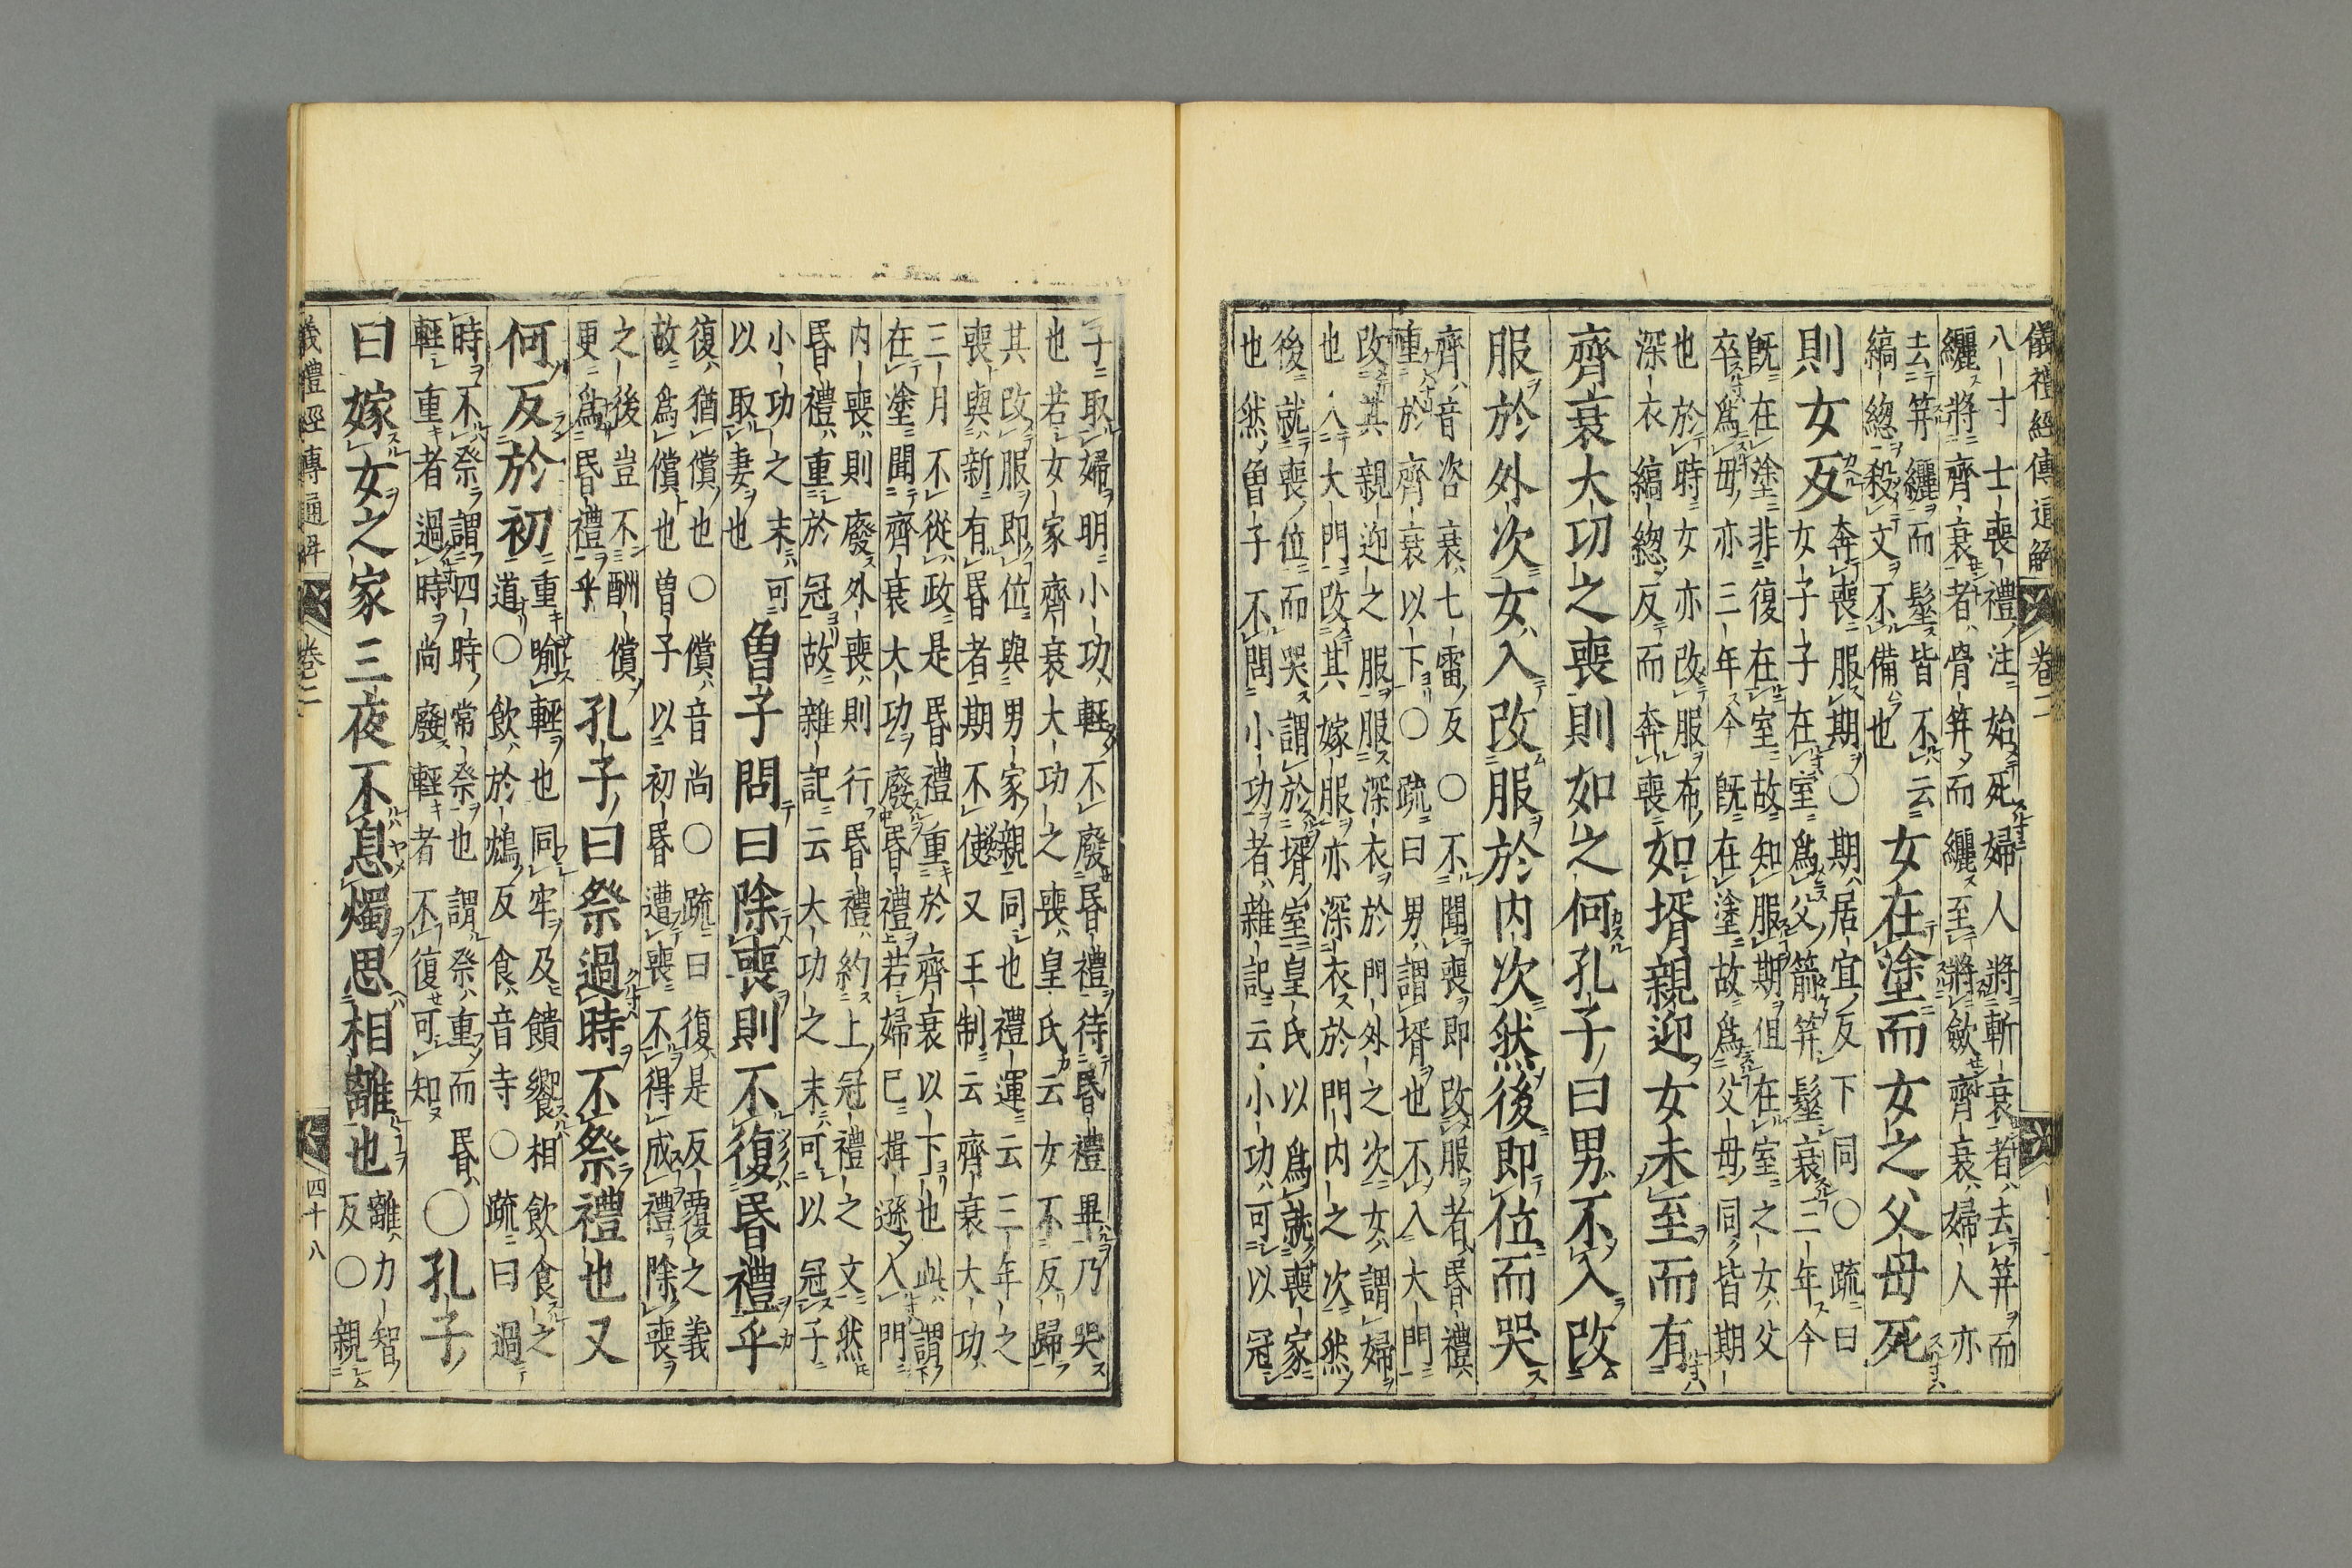 儀禮經傳通解 卷二
八寸士喪禮注始死婦人將斬衰者去笄而
纚將齊衰者骨笄而纚至將斂齊衰婦人亦
去笄纚而髽皆不云
縞總殺文不備也
女在塗而女之父母死
則女反
奔喪服期○期居宜反下同○疏曰
女子子在室爲父箭笄髽衰三年今
既在塗非復在室故知服期但在室之女父
卒爲母亦三年今既在塗故爲父母同皆期
也於時女亦改服布
深衣縞緫反而奔喪
如壻親迎女未至而有
齊衰大功之喪則如之何孔子曰男不入改
服於外次女入改服於内次然後即位而哭
齊音咨衰七雷反○不聞喪即改服者昏禮
重於齊衰以下○疏曰男謂壻也不入大門
改其親迎之服服深衣於門外之次女謂婦
也入大門改其嫁服亦深衣於門内之次然
後就喪位而哭謂於壻室皇氏以爲就喪家
也然曽子不問小功者雜記云小功可以冠
子取婦明小功輕不廢昏禮待昏禮畢乃哭
也若女家齊衰大功之喪皇氏云女不反歸
其改服即位與男家親同也禮運云三年之
喪與新有昏者期不使又王制云齊衰大功
三月不從政是昏禮重於齊衰以下也此謂
在塗聞齊衰大功廢昏禮若婦已揖遜入門
内喪則廢外喪則行昏禮約上冠禮之文然
昏禮重於冠故雜記云大功之末可以冠子
小功之末可
以取妻也
曽子問曰除喪則不復昏禮乎
復猶償也○償音尚○疏曰復是反覆之義
故爲償也曽子以初昏遭喪不得成禮除喪
之後豈不酬償
更爲昏禮乎
孔子曰祭過時不祭禮也又
何反於初
重喻輕也同牢及饋饗相飲食之
道○飲於鴆反食音寺○疏曰過
時不祭謂四時常祭也謂祭重而昏
輕重者過時尚廢輕者不復可知
○孔子
曰嫁女之家三夜不息燭思相離也
離力智
反○親
儀禮經傳通解 卷二 四十八